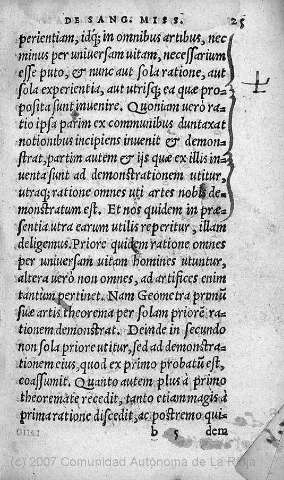 DE SANG. MISS. 25
perientiam, idq; in omnibus artibus, nec
minus per uniuersam uitam, necessarium
esse puto, & nunc aut sola ratione, aut
sola experientia, aut utrisq; ea quæ pro-
posita sunt inuenire. Quoniam uerò ra
tio ipsa partim ex communibus duntaxat
notionibus incipiens inuenit & demon-
strat, partim autem & ijs quæ ex illis in-
uenta sunt ad demonstrationem utitur,
utraq; ratione omnes uti artes nobis de-
monstratum est. Et nos quidem in præ-
sentia utra earum utilis repertur, illam
deligemus. Priore quidem ratione omnes
per uniuersam uitam homines utuntur,
altera uerò non omnes, ad artifices enim
tantum pertinet. Nam Geometra primũ
suæ artis theorema per solam priorẽ ra-
tionem demonstrat. Deinde in secundo
non sola priore utitur, sed ad demonstra-
tionem eius, quod ex primo probatũ est,
coassumit. Quanto autem plus à primo
theoremate recedit, tanto etiam magis à
prima ratione discedit, ac postremo qui-
b 5 dem
(c) 2007 Comunidad Autónoma de La Rioja